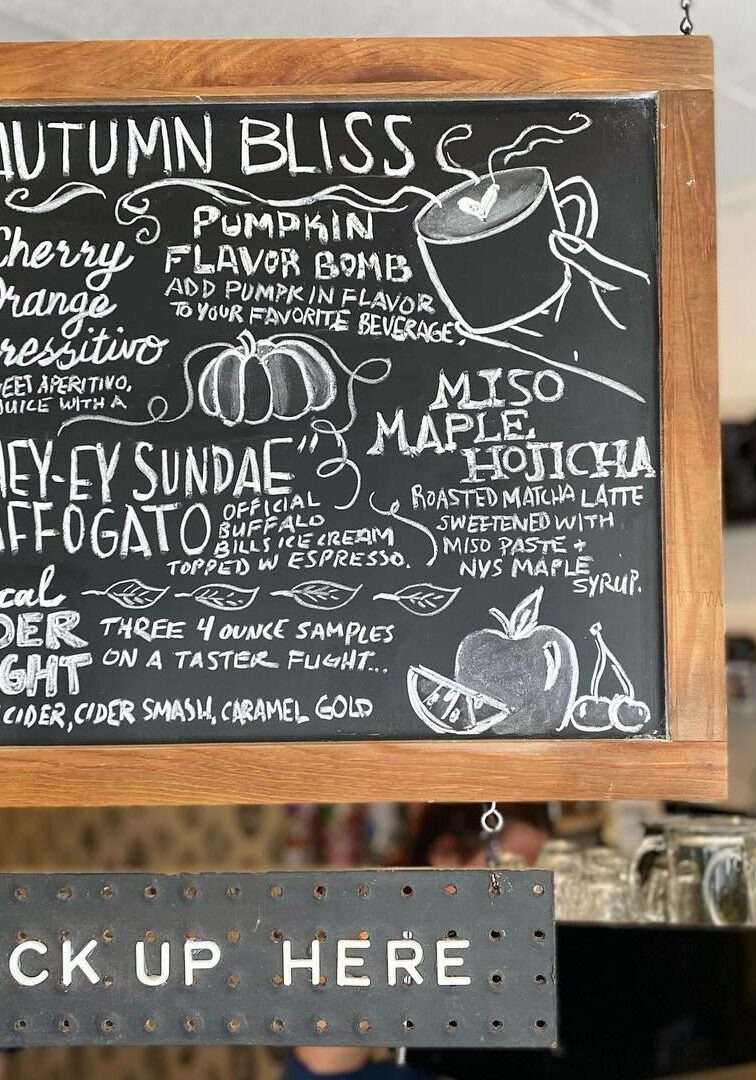 AUTUMN BLISS
Cherry
Orange
ressitivo
EET APERITIVO,
JUICE WITH A
PUMPKIN
FLAVOR BOMB
ADD PUMPKIN FLAVOR
TO YOUR FAVORITE BEVERAGE
HEY-EY SUNDAE"
AFFOGATO
OFFICIAL
BUFFALO
BILLS ICE CREAM
TOPPED W ESPRESSO.
MISO
MAPLE
HOJICHA
ROASTED MATCHA LATTE
SWEETENED WITH
MISO PASTE +
NYS MAPLE
SYRUP.
cal
DER
GHT
THREE 4 OUNCE SAMPLES
ON A TASTER FLIGHT...
CIDER, CIDER SMASH, CARAMEL GOLD
CK UP HERE